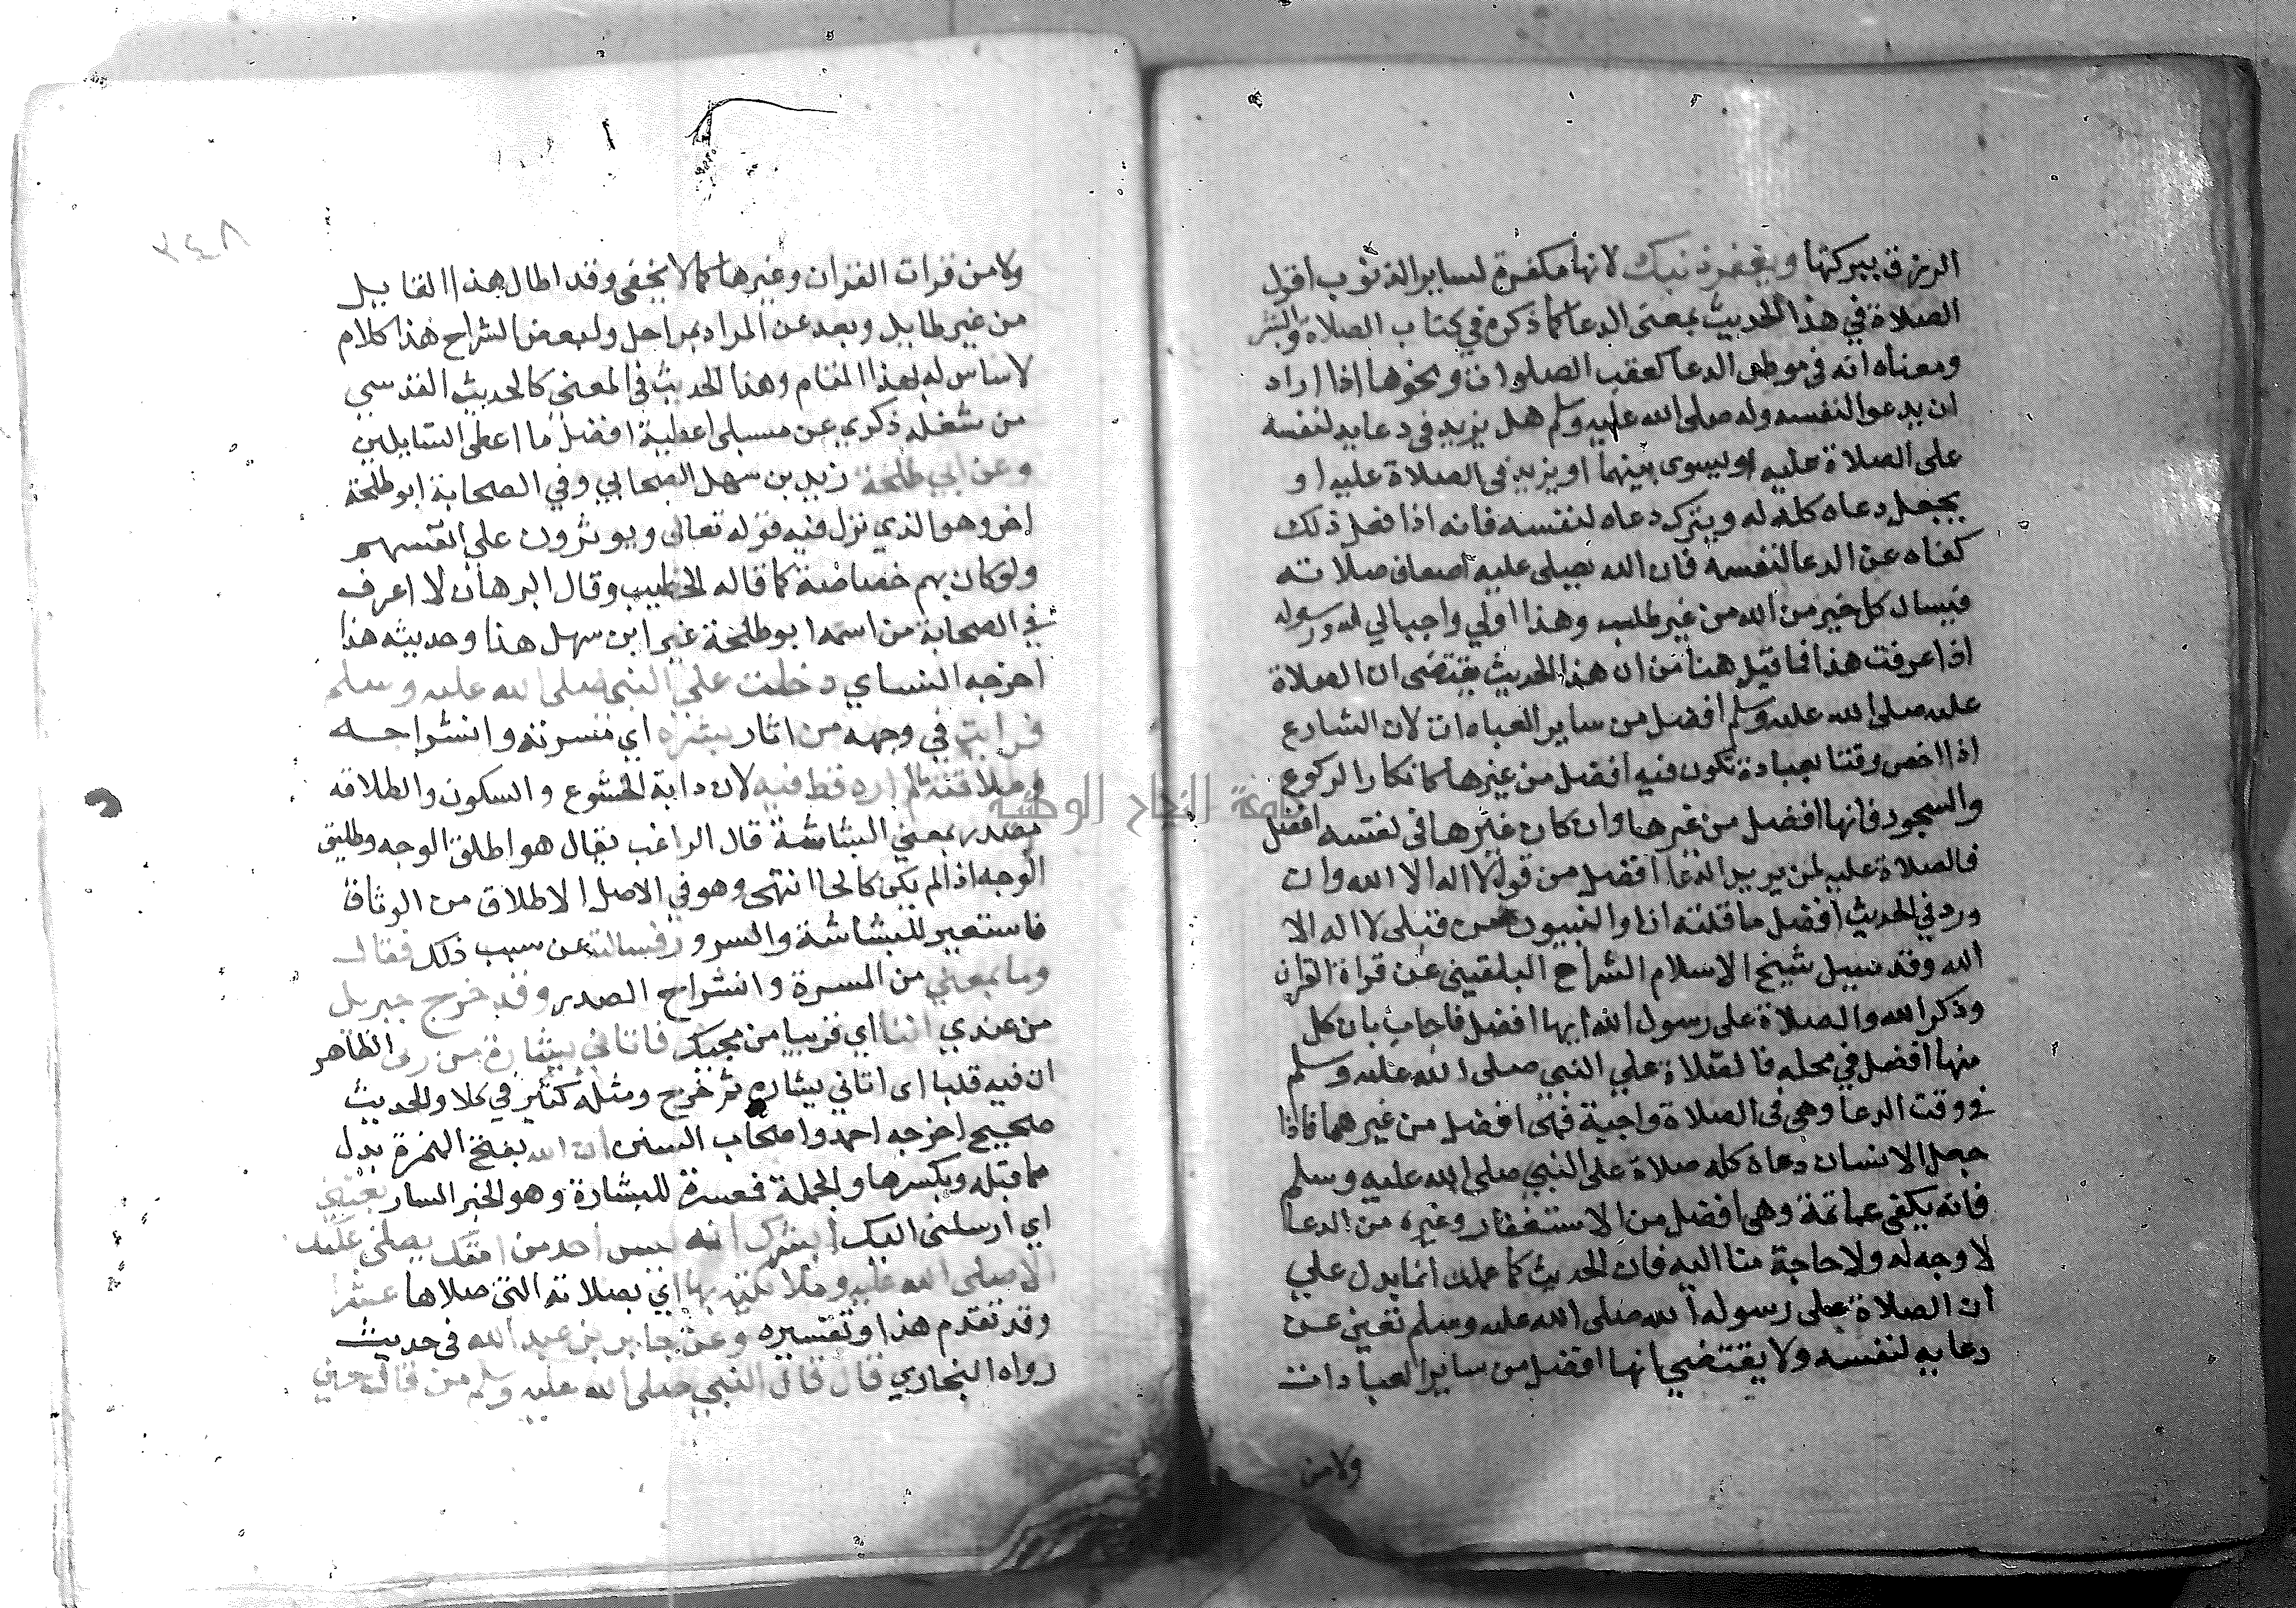 الرزق ببركتها ويغفر ذنبك لانها مكفرة لساير الذنوب اقول
الصلاة في هذا الحديث بمعنى الدعا كما ذكره في كتاب الصلاة والبشر
ومعناه انه في موطن الدعا كعقب الصلوات ونحوها اذا اراد
ان يدعو لنفسه وله صلى الله عليه وسلم هل يزيد في دعايه لنفسه
على الصلاة عليه او يسوى بينهما او يزيد في الصلاة عليه او
يجعل دعاه كله له ويترك دعاه لنفسه فانه اذا فعل ذلك
كفاه عن الدعا لنفسه فان الله يصلى عليه اضعاف صلاته
فيسال كل خير من الله من غير طلب وهذا اولي واحب الي الله ورسوله
اذا عرفت هذا فما قيل هنا من ان هذا الحديث يقتضى ان الصلاة
عليه صلى الله عليه وسلم افضل من ساير العبادات لان الشارع
اذا اخص وقتا بعبادة تكون فيه افضل من غيرها كاذكار الركوع
والسجود فانها افضل من غيرها وان كان غيرها في نفسه افضل
فالصلاة عليه لمن يريد الدعا افضل من قول لا اله الا الله وان
ورد في الحديث افضل ما قلته انا والنبيون من قبلى لا اله الا
الله وقد سيل شيخ الاسلام السراج البلقيني عن قراة القران
وذكر الله والصلاة على رسول الله ايها افضل فاجاب بان كل
منها افضل في محله فالصلاة علي النبي صلى الله عليه وسلم
في وقت الدعا وهى في الصلاة واجبة فهى افضل من غيرهما فاذا
جعل الانسان دعاه كله صلاة على النبي صلى الله عليه وسلم
فانه يكفى عماتمة وهى افضل من الاستغفار وغيره من الدعا
لا وجه له ولا حاجة منا اليه فان الحديث كما علمت انما يدل علي
ان الصلاة على رسول الله صلى الله عليه وسلم تغنى عن
دعايه لنفسه ولا يقتضي انها افضل من ساير العبادات
ولا من
٣٤٨
ولا من قرات القران وغيرها كما لا يخفى وقد اطال هذا القايل
من غير طايل وبعد عن المراد بمراحل ولبعض الشراح هذا كلام
لا ساس له بهذا المقام وهذا الحديث في المعنى كالحديث القدسي
من شغله ذكري عن مسيلى اعطيته افضل ما اعطى السايلين
وعن ابي طلحة زيد بن سهل الصحابي وفي الصحابة ابو طلحة
اخر وهو الذي نزل فيه قوله تعالى ويوثرون على انفسهم
ولو كان بهم خصاصة كما قاله الخطيب وقال البرهان لا اعرف
في الصحابة من اسمه ابو طلحة غير ابن سهل هذا وحديثه هذا
اخرجه النساي دخلت على النبي صلى الله عليه وسلم
فرايت في وجهه من اثار بشره اي مسرته وانشراحه
وطلاقته لم اره قط فيه لان دابة الخشوع والسكون والطلاقة
مصدر بمعني البشاشة قال الراغب يقال هو اطلق الوجه وطليق
الوجه اذا لم يكن كالحا انتهى وهو في الاصل الاطلاق من الوثاق
فاستعير للبشاشة والسرور فسالته عن سبب ذلك فقال
وما يمعني من المسرة وانشراح الصدر وقد خرج جبريل
من عندي انفا اي قريبا من مجيك فاتاني ببشارة من ربى الظاهر
ان فيه قلبا اى اتاني ببشاره ثم خرج ومثله كثير في كلا والحديث
صحيح اخرجه احمد واصحاب السنن ان الله بفتح الهمزة بدل
مما قبله وبكسرها والجملة مفسرة للبشارة وهو الخبر السار بعثني
اي ارسلنى اليك ابشرك انه ليس احد من امتك يصلى عليك
الا صلى الله عليه وملايكته بها اي بصلاته التى صلاها عشرا
وقد تقدم هذا وتفسيره وعن جابر بن عبد الله فى حديث
رواه البخاري قال قال النبي صلى الله عليه وسلم من قال حين
جامعة النجاح الوطنية